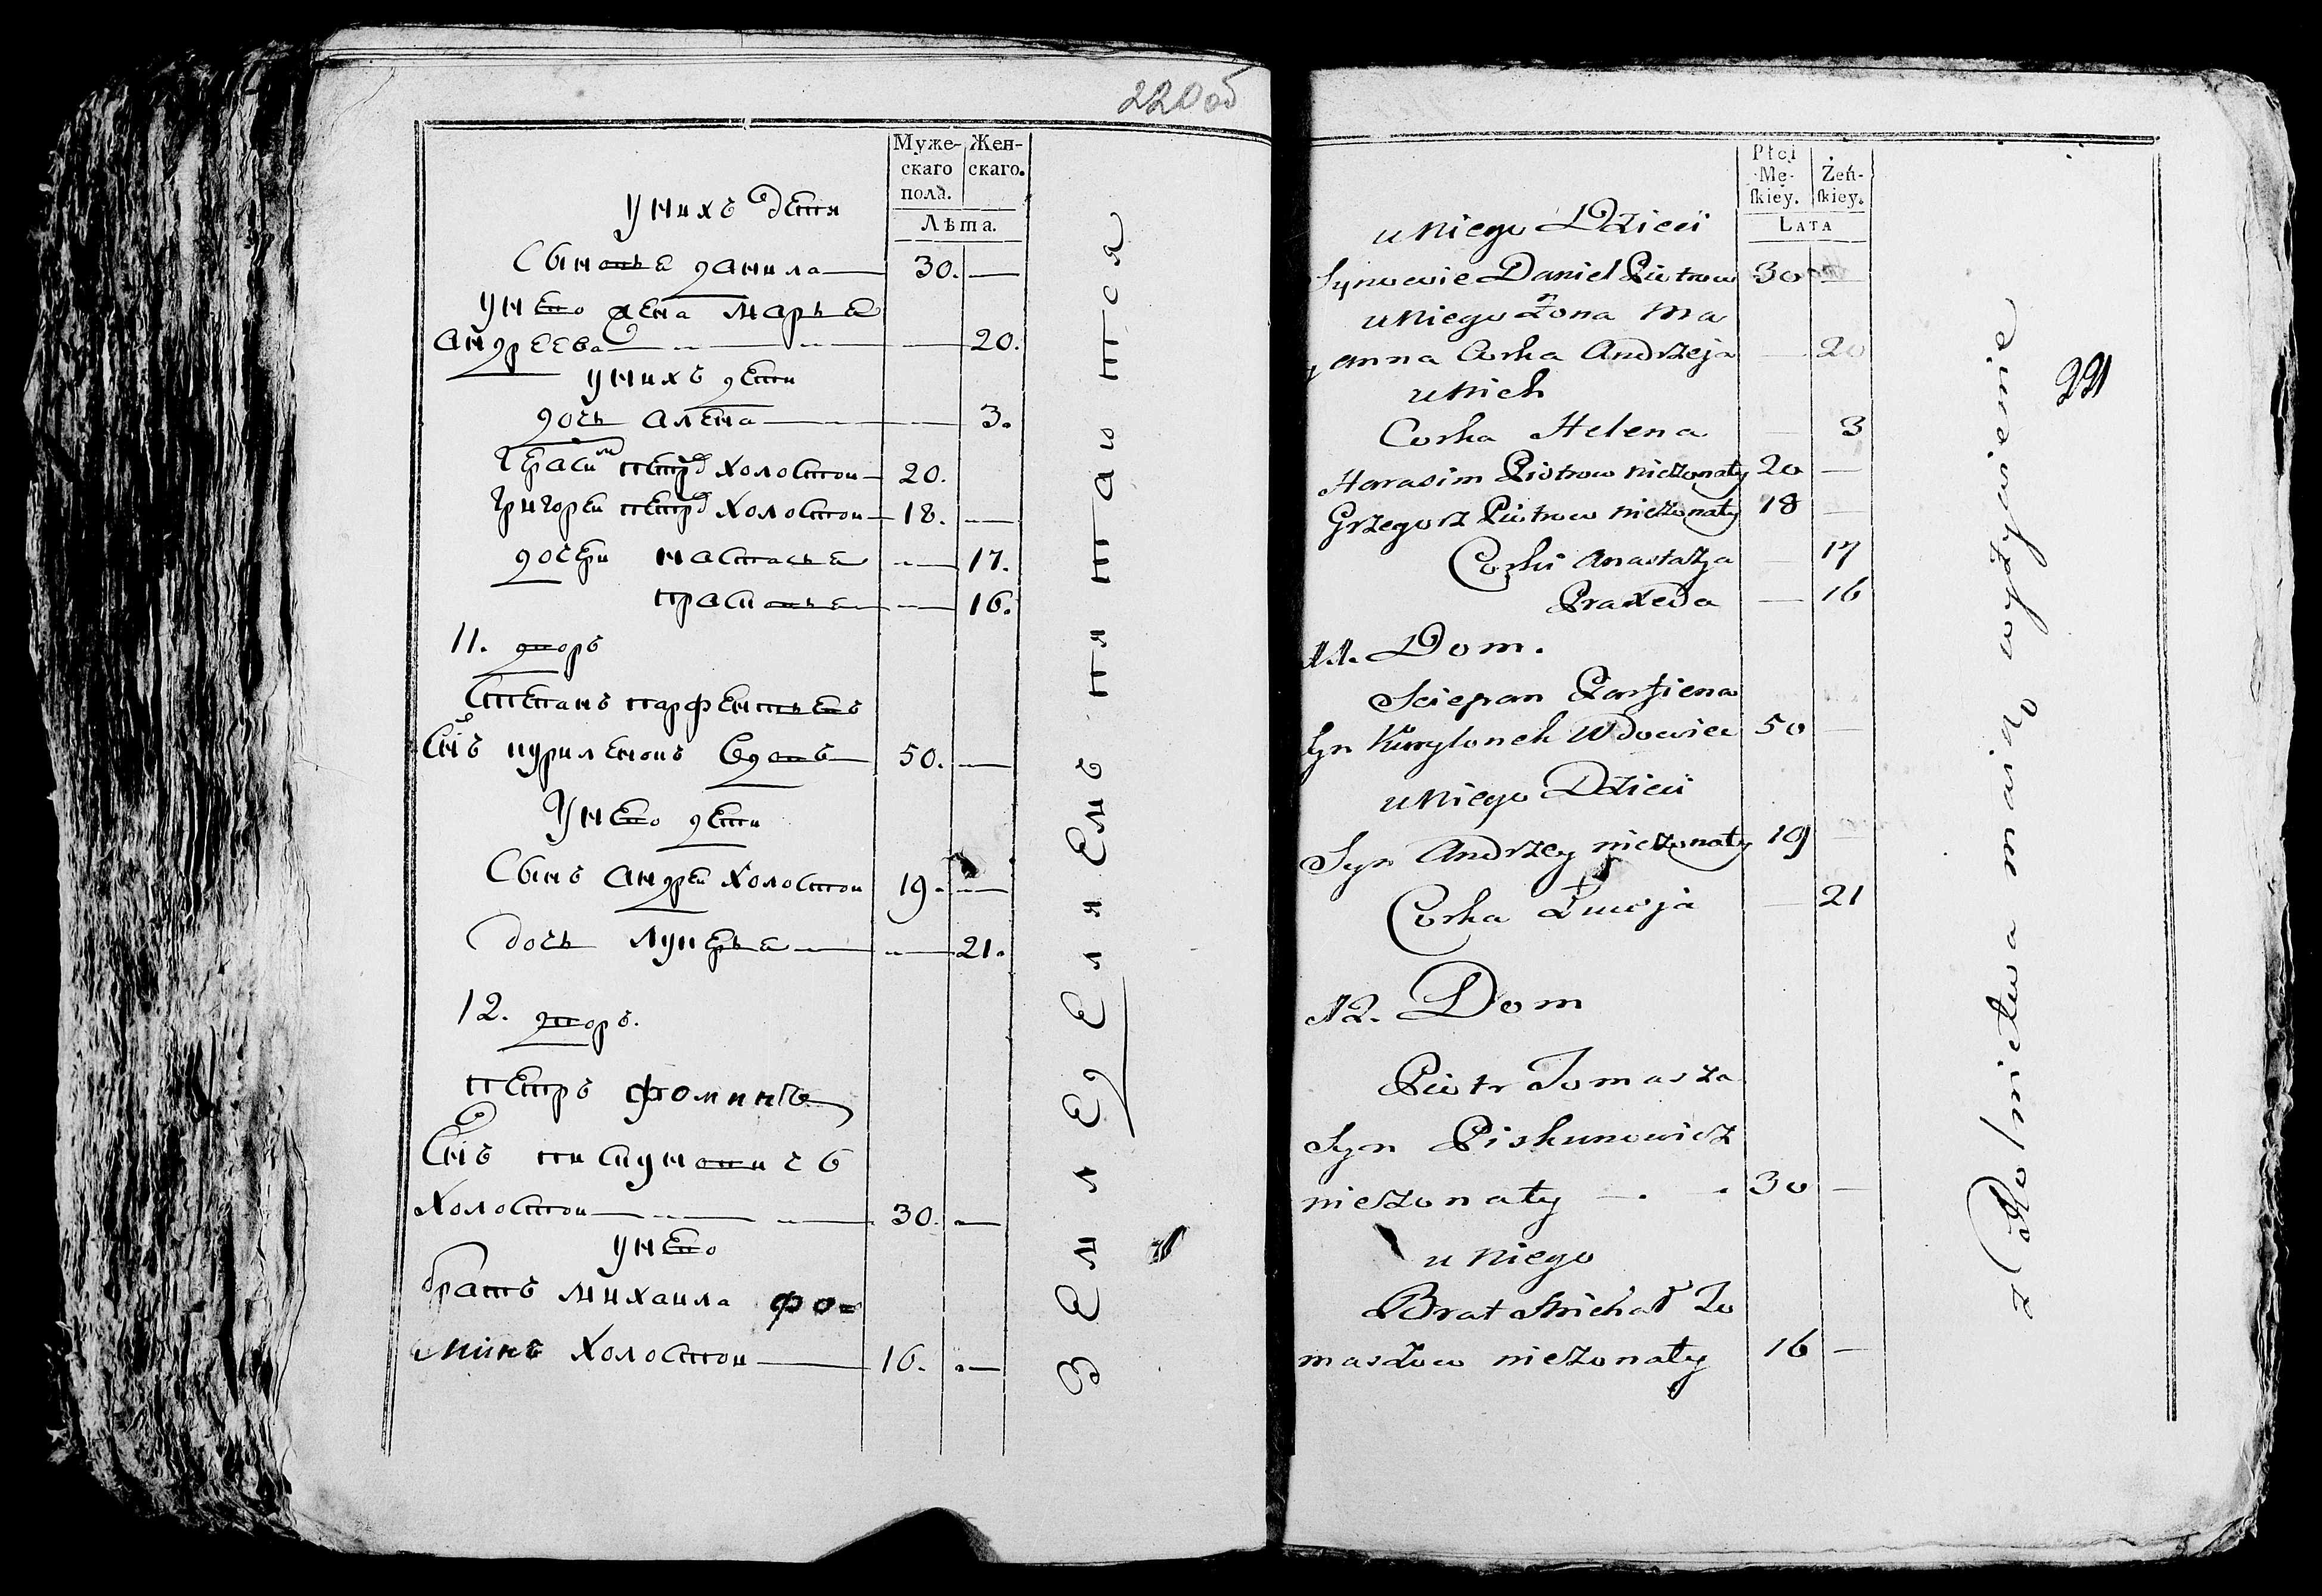 220об
Муже- Жен-
скаго скаго.
пола.
Лѣта.
у нихъ дети
Сыновья данила 30. —
у него жена марья
андреева — 20.
у нихъ дети
дочь алена — 3.
Герасим петров холостои 20.
Григореи петров холостои 18. —
дочери настасья — 17.
прасковья — 16.
11. дворъ
Степанъ парфентьевъ
Снъ вдовъ 50. —
У него дети
Сынъ андреи холостои 19. —
дочь лукерья — 21.
12. дворъ.
петръ фоминъ
Снъ пискуновичъ
холостои 30. —
у него
братъ михаила фо=
минъ холостои 16. —
Земледелиемъ питаются
Płci Żeń-
Mę- skiey.
skiey.
LATA
u Niego Dzieci
Synowie Daniel Piotrow 30 —
u Niego Żona Ma
ryanna Corka Andrzeja — 20
u Nich
Corka Helena — 3
Harasim Piotrow nieżonaty 20 —
Grzegorz Piotrow nieżonaty 18 —
Corki Anastazya — 17
Praxeda — 16
11. Dom.
Sciepan Parfiena
Syn Wdowiec 50 —
u Niego Dzieci
Syn Andrzey nieżonaty 19 —
Corka — 21
12. Dom
Piotr Tomasza
Syn Piskunowicz
nieżonaty 30 —
u Niego
Brat Michał To
maszow nieżonaty 16 —
z Rolnictwa maią wyżywienie
221